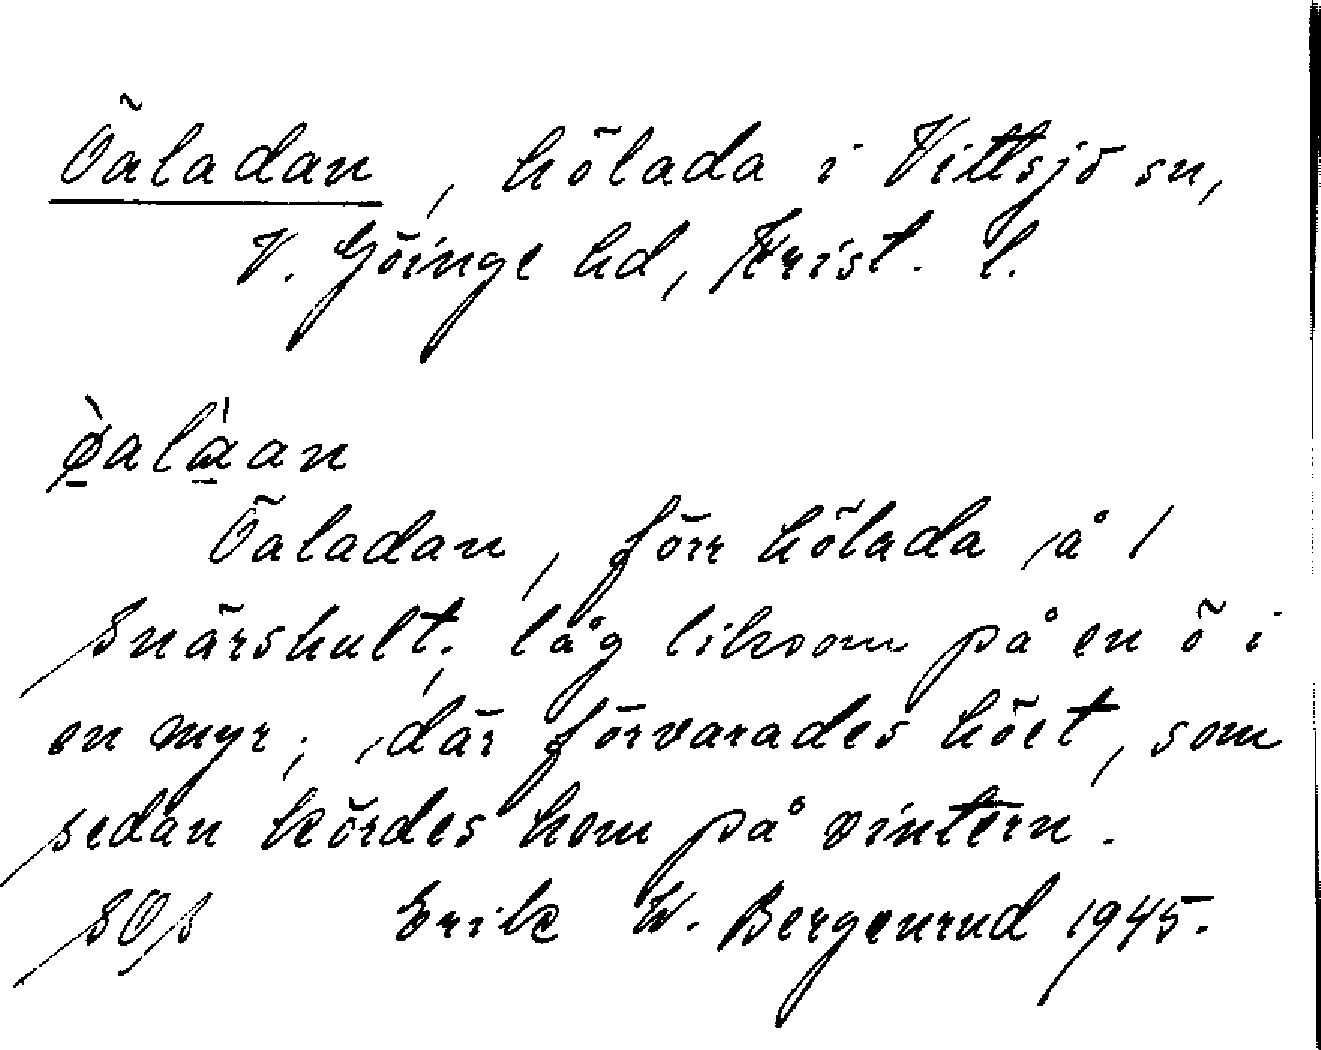 Öaladan, hölada i Vittsjö sn,
V. Göinge hd, Krist. l.
ø̠̀alà̠an
Öaladan, förr hölada å 1
Snärshult; låg liksom på en ö i
en myr; där förvarades höet, som
sedan kördes hem på vintern.
SOS Erik W. Bergenrud 1945.